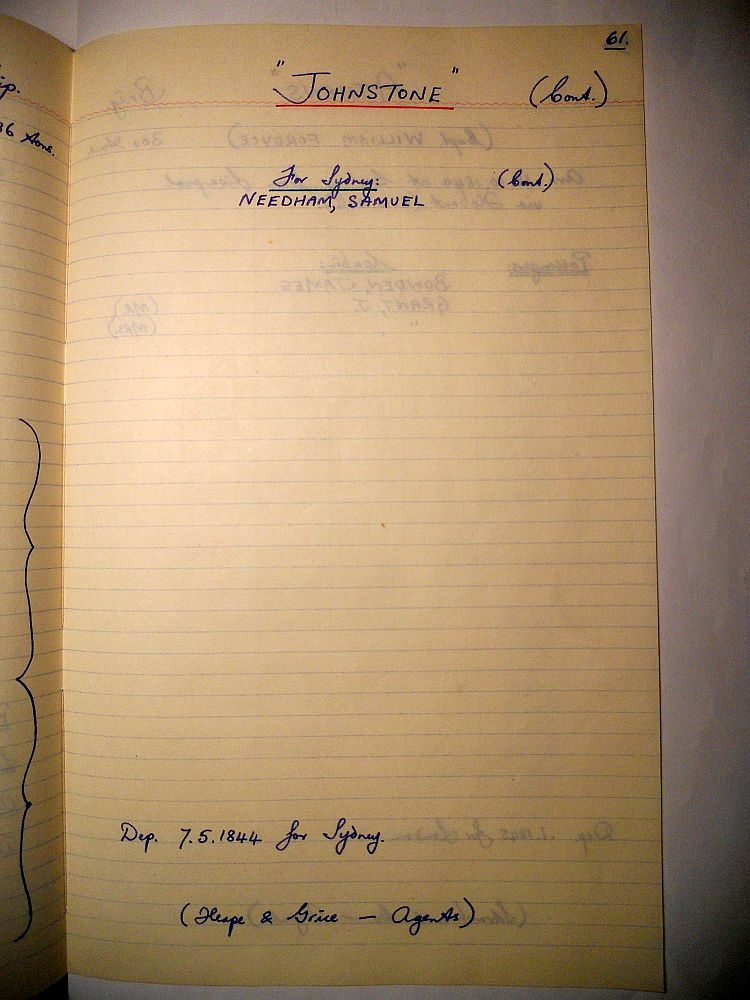 61.
"JOHNSTONE" (Cont.)
For Sydney: (Cont.)
NEEDHAM, SAMUEL
Dep. 7.5.1844 for Sydney.
(Heape & Grice — Agents)
ip.
36 Tons.